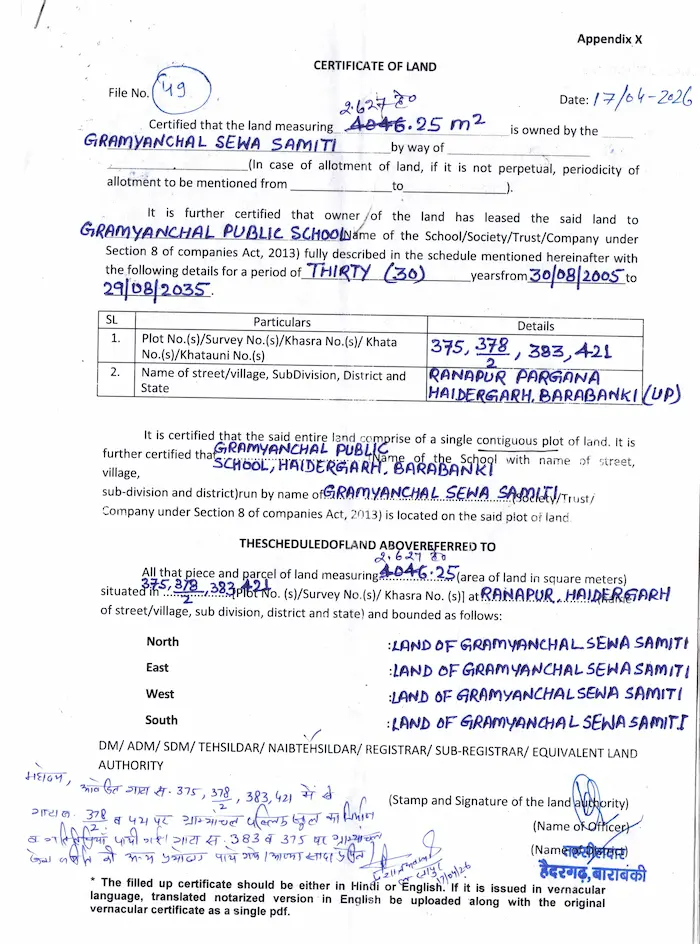 Appendix X
CERTIFICATE OF LAND
File No. 49 Date: 17/04-2026
2.627 हे०
Certified that the land measuring 4046.25 m² is owned by the
GRAMYANCHAL SEWA SAMITI by way of
(In case of allotment of land, if it is not perpetual, periodicity of
allotment to be mentioned from to ).
It is further certified that owner of the land has leased the said land to
GRAMYANCHAL PUBLIC SCHOOL Name of the School/Society/Trust/Company under
Section 8 of companies Act, 2013) fully described in the schedule mentioned hereinafter with
the following details for a period of THIRTY (30) yearsfrom 30/08/2005 to
29/08/2035.
SL Particulars Details
1. Plot No.(s)/Survey No.(s)/Khasra No.(s)/ Khata 375, 378/2, 383, 421
No.(s)/Khatauni No.(s)
2. Name of street/village, SubDivision, District and RANAPUR PARGANA
State HAIDERGARH, BARABANKI (UP)
It is certified that the said entire land comprise of a single contiguous plot of land. It is
further certified that GRAMYANCHAL PUBLIC (Name of the School with name of street,
SCHOOL, HAIDERGARH, BARABANKI
village,
sub-division and district)run by name of GRAMYANCHAL SEWA SAMITI (Society/Trust/
Company under Section 8 of companies Act, 2013) is located on the said plot of land
THESCHEDULEDOFLAND ABOVEREFERRED TO
2.627 हे०
All that piece and parcel of land measuring 4046.25 (area of land in square meters)
situated in 375, 378/2, 383, 421 [Plot No. (s)/Survey No.(s)/ Khasra No. (s)] at RANAPUR, HAIDERGARH (Name
of street/village, sub division, district and state) and bounded as follows:
North :LAND OF GRAMYANCHAL SEWA SAMITI
East :LAND OF GRAMYANCHAL SEWA SAMITI
West :LAND OF GRAMYANCHAL SEWA SAMITI
South :LAND OF GRAMYANCHAL SEWA SAMITI
DM/ ADM/ SDM/ TEHSILDAR/ NAIBTEHSILDAR/ REGISTRAR/ SUB-REGISTRAR/ EQUIVALENT LAND
AUTHORITY
महोदय,
गाटा सं. 375, 378/2, 383, 421 में से
378/2 व 421 पर ग्राम्यांचल पब्लिक स्कूल का निर्माण
गाटा सं. 383 व 375 पर ग्राम्यांचल
17/04/26
(Stamp and Signature of the land authority)
(Name of Officer)
(Name of
तहसीलदार
हैदरगढ़, बाराबंकी
* The filled up certificate should be either in Hindi or English. If it is issued in vernacular
language, translated notarized version in English be uploaded along with the original
vernacular certificate as a single pdf.